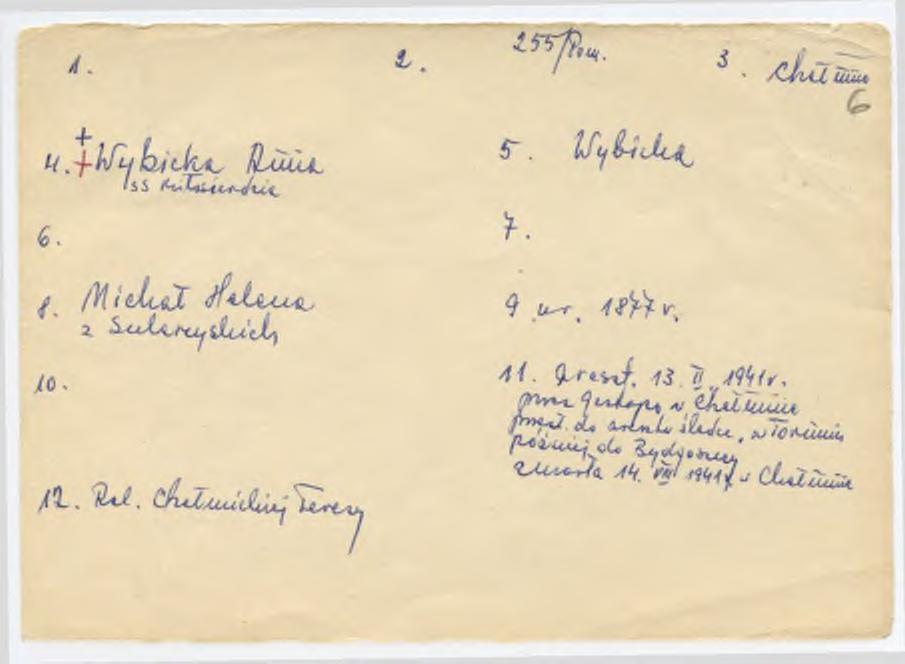 1.
2.
255/Pom.
3. Chełmno
6
+
4. + Wybicka Anna
ss miłosierdzia
5. Wybicka
6.
7.
8. Michał Helena
z Sulerzyskich
9. ur. 1877 r.
10.
11. Areszt. 13. II. 1941 r.
przez Gestapo w Chełmnie
przest. do aresztu śledcz. w Toruniu
później do Bydgoszczy
zmarła 14. VIII 1941 r. w Chełmnie
12. Rel. Chełmickiej Teresy